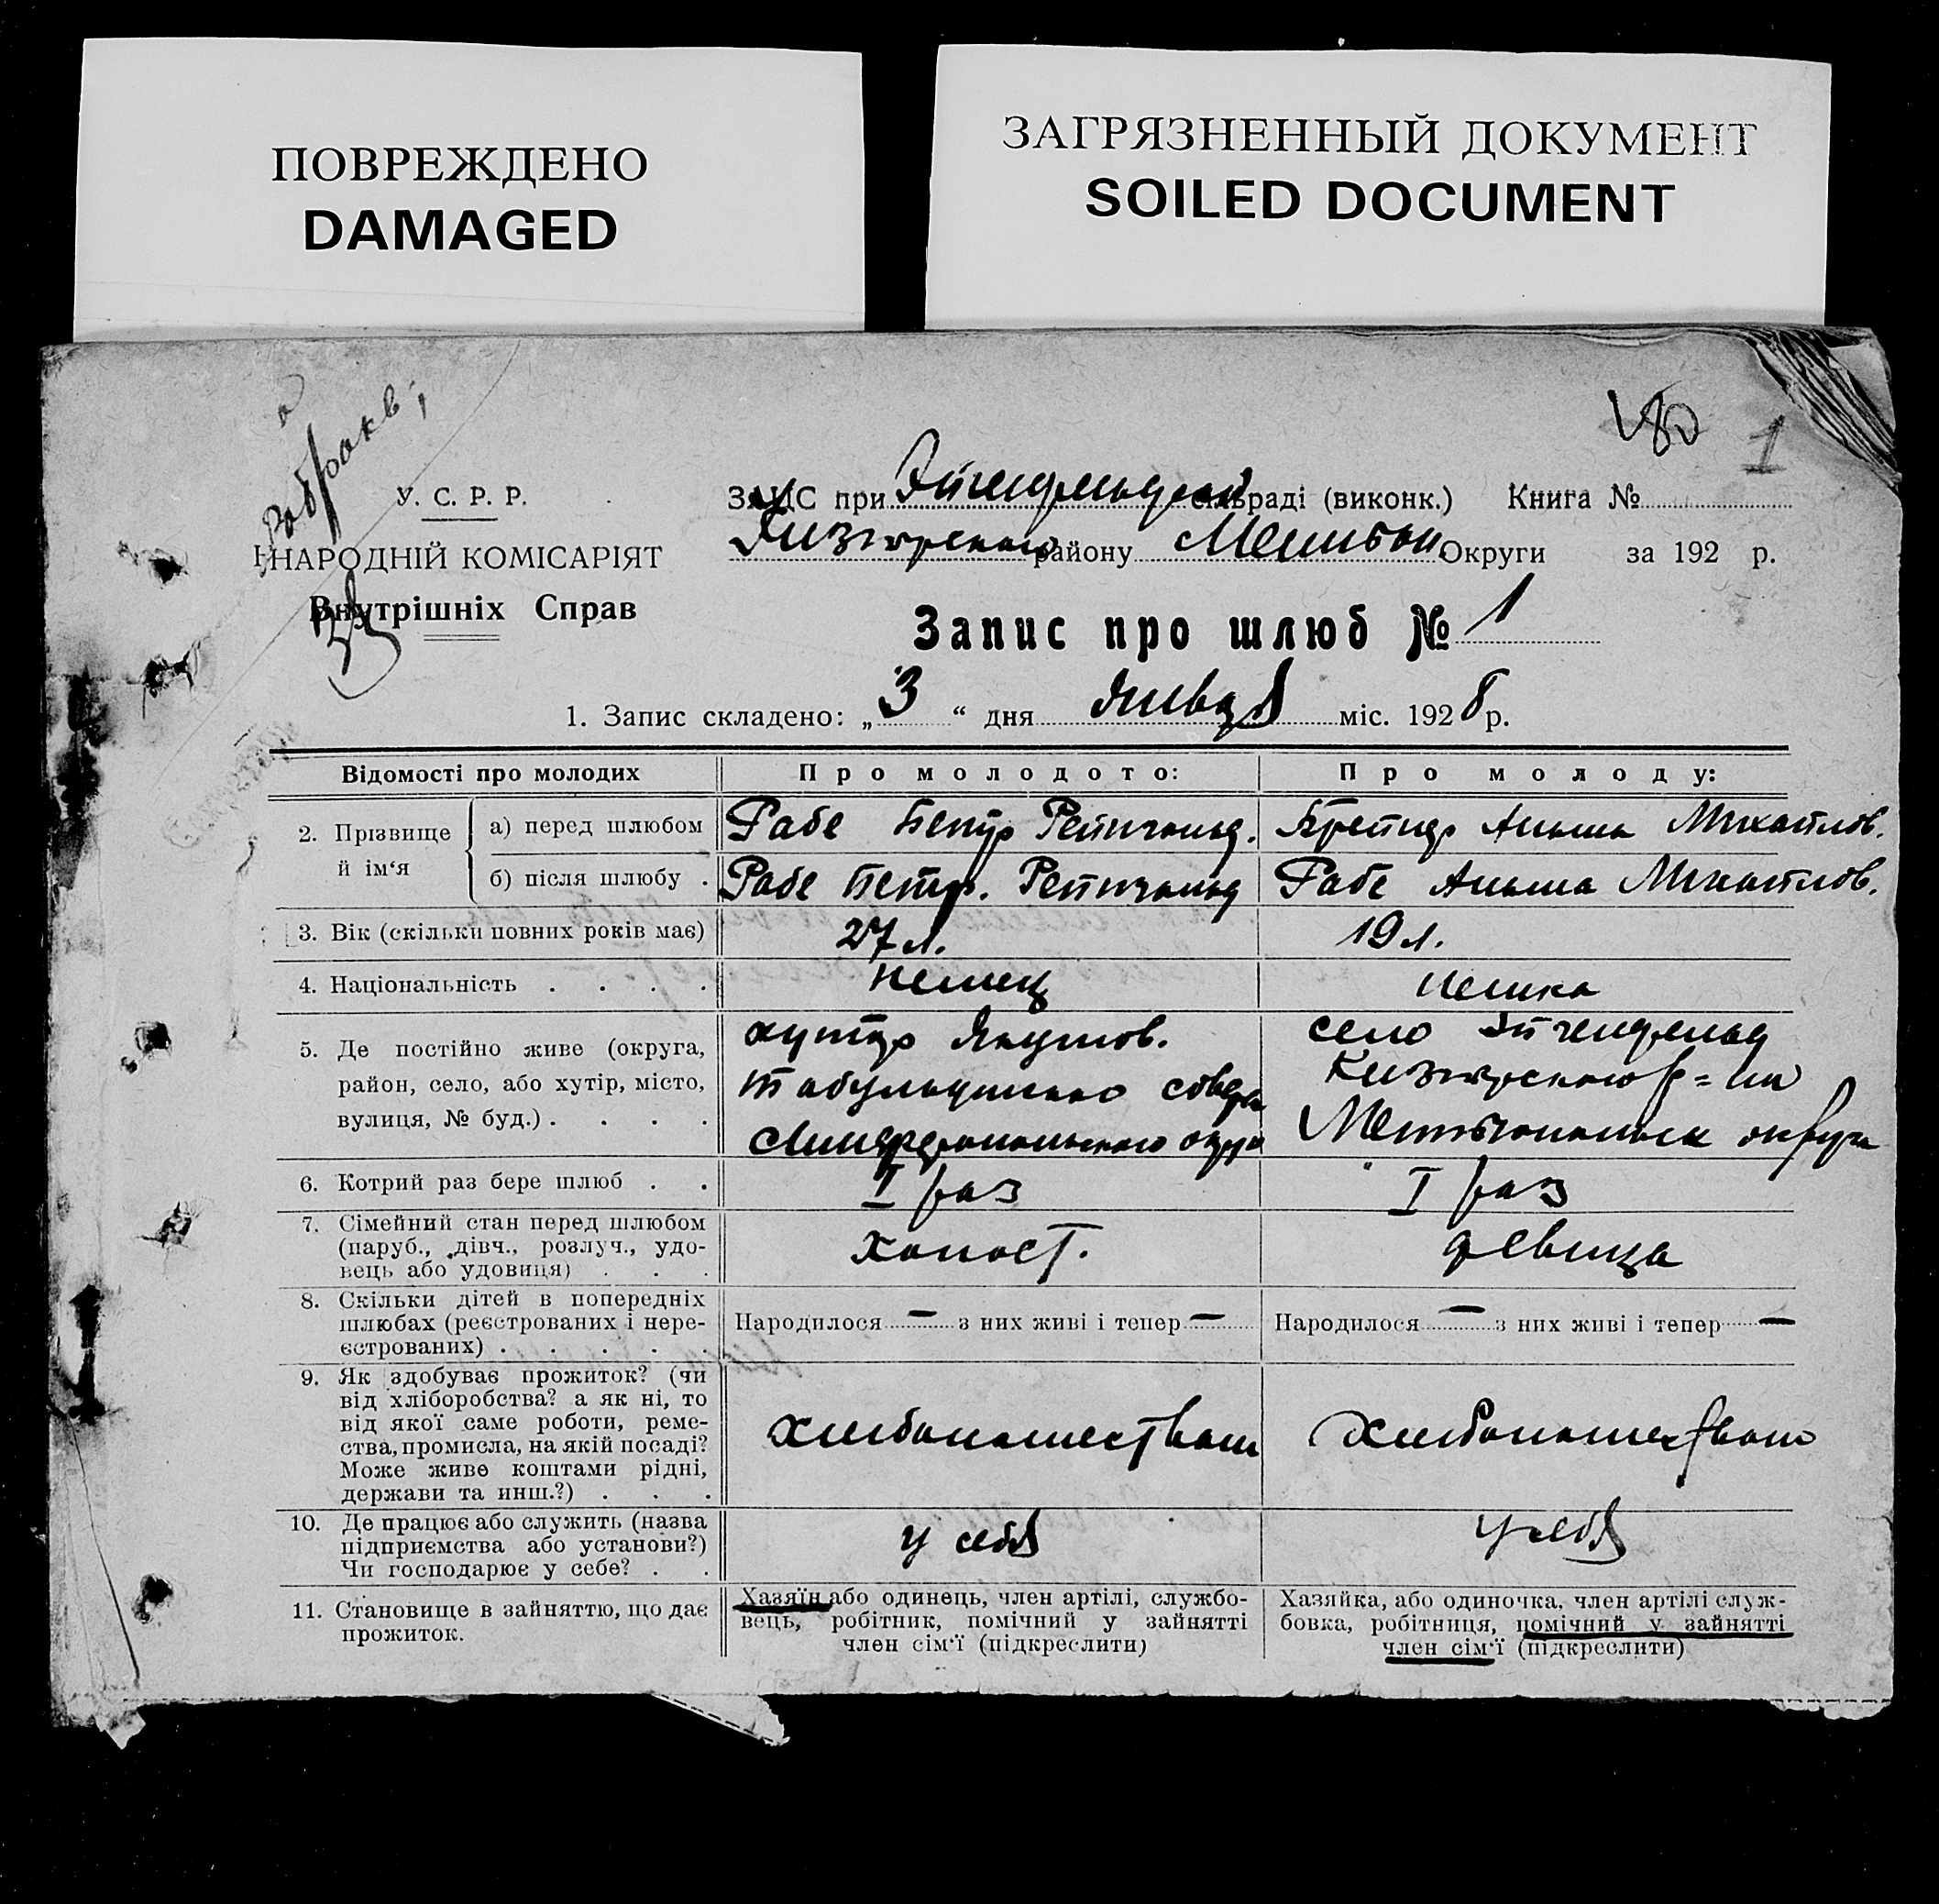 ПОВРЕЖДЕНО
DAMAGED
ЗАГРЯЗНЕННЫЙ ДОКУМЕНТ
SOILED DOCUMENT
180 1
У. С. Р. Р.
НАРОДНІЙ КОМІСАРІЯТ
Внутрішніх Справ
ЗАЦС при сільраді (виконк.) Книга №
району Округи за 192 р.
Запис про шлюб № 1
1. Запис складено: „ 3 “ дня января міс. 1928 р.
Відомості про молодих
Про молодого:
Про молоду:
2. Прізвище й ім‘я
а) перед шлюбом
Рабе Петр Рейнгольд.
Анна Михайлов.
б) після шлюбу .
Рабе Петр. Рейнгольд
Рабе Анна Михайлов.
3. Вік (скільки повних років має)
27 л.
19 л.
4. Національність . . . .
немец
немка
5. Де постійно живе (округа,
район, село, або хутір, місто,
вулиця, № буд.) . . . .
хутор
Симферопольского округа
село Эйгенфельд
р-на
округа
6. Котрий раз бере шлюб . .
I раз
I раз
7. Сімейний стан перед шлюбом
(паруб., дівч., розлуч., удо-
вець або удовиця) . . .
холост.
девица
8. Скільки дітей в попередніх
шлюбах (реєстрованих і нере-
єстрованих) . . . . .
Народилося — з них живі і тепер —
Народилося — з них живі і тепер —
9. Як здобуває прожиток? (чи
від хліборобства? а як ні, то
від якої саме роботи, реме-
ства, промисла, на якій посаді?
Може живе коштами рідні,
держави та инш.?) . . .
хлебопашеством
хлебопашеством
10. Де працює або служить (назва
підприємства або установи?)
Чи господарює у себе? . .
у себя
у себя
11. Становище в зайняттю, що дає
прожиток.
Хазяїн або одинець, член артілі, службо-
вець, робітник, помічний у зайнятті
член сім‘ї (підкреслити)
Хазяйка, або одиночка, член артілі служ-
бовка, робітниця, помічний у зайнятті
член сім‘ї (підкреслити)